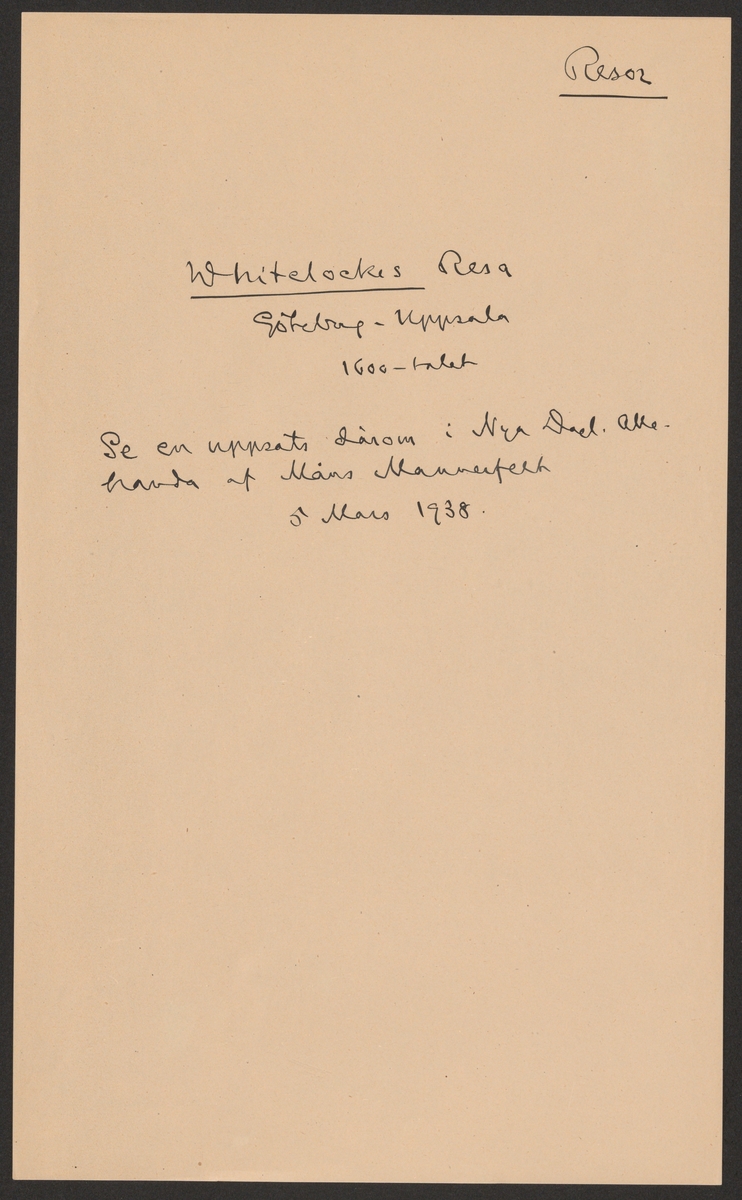 Resor
Whitelockes Resa
Göteborg - Uppsala
1600-talet
Se en uppsats därom i Nya Dagl. Alle-
handa af Måns Mannerfelt
5 Mars 1938.